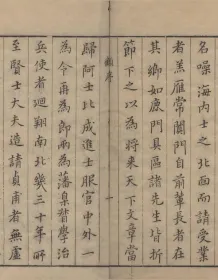 名噪海内士之北面而請受業
者羔雁常闐門自前輩長者在
其鄉如康門具區諸先生皆折
節下之以為將來天下文章當
序
一
歸阿士比成進士服官中外一
為令再為郎兩為藩臬督學治
兵使者迴翔南北幾三十年所
至賢士大夫造請貞甫者無虛